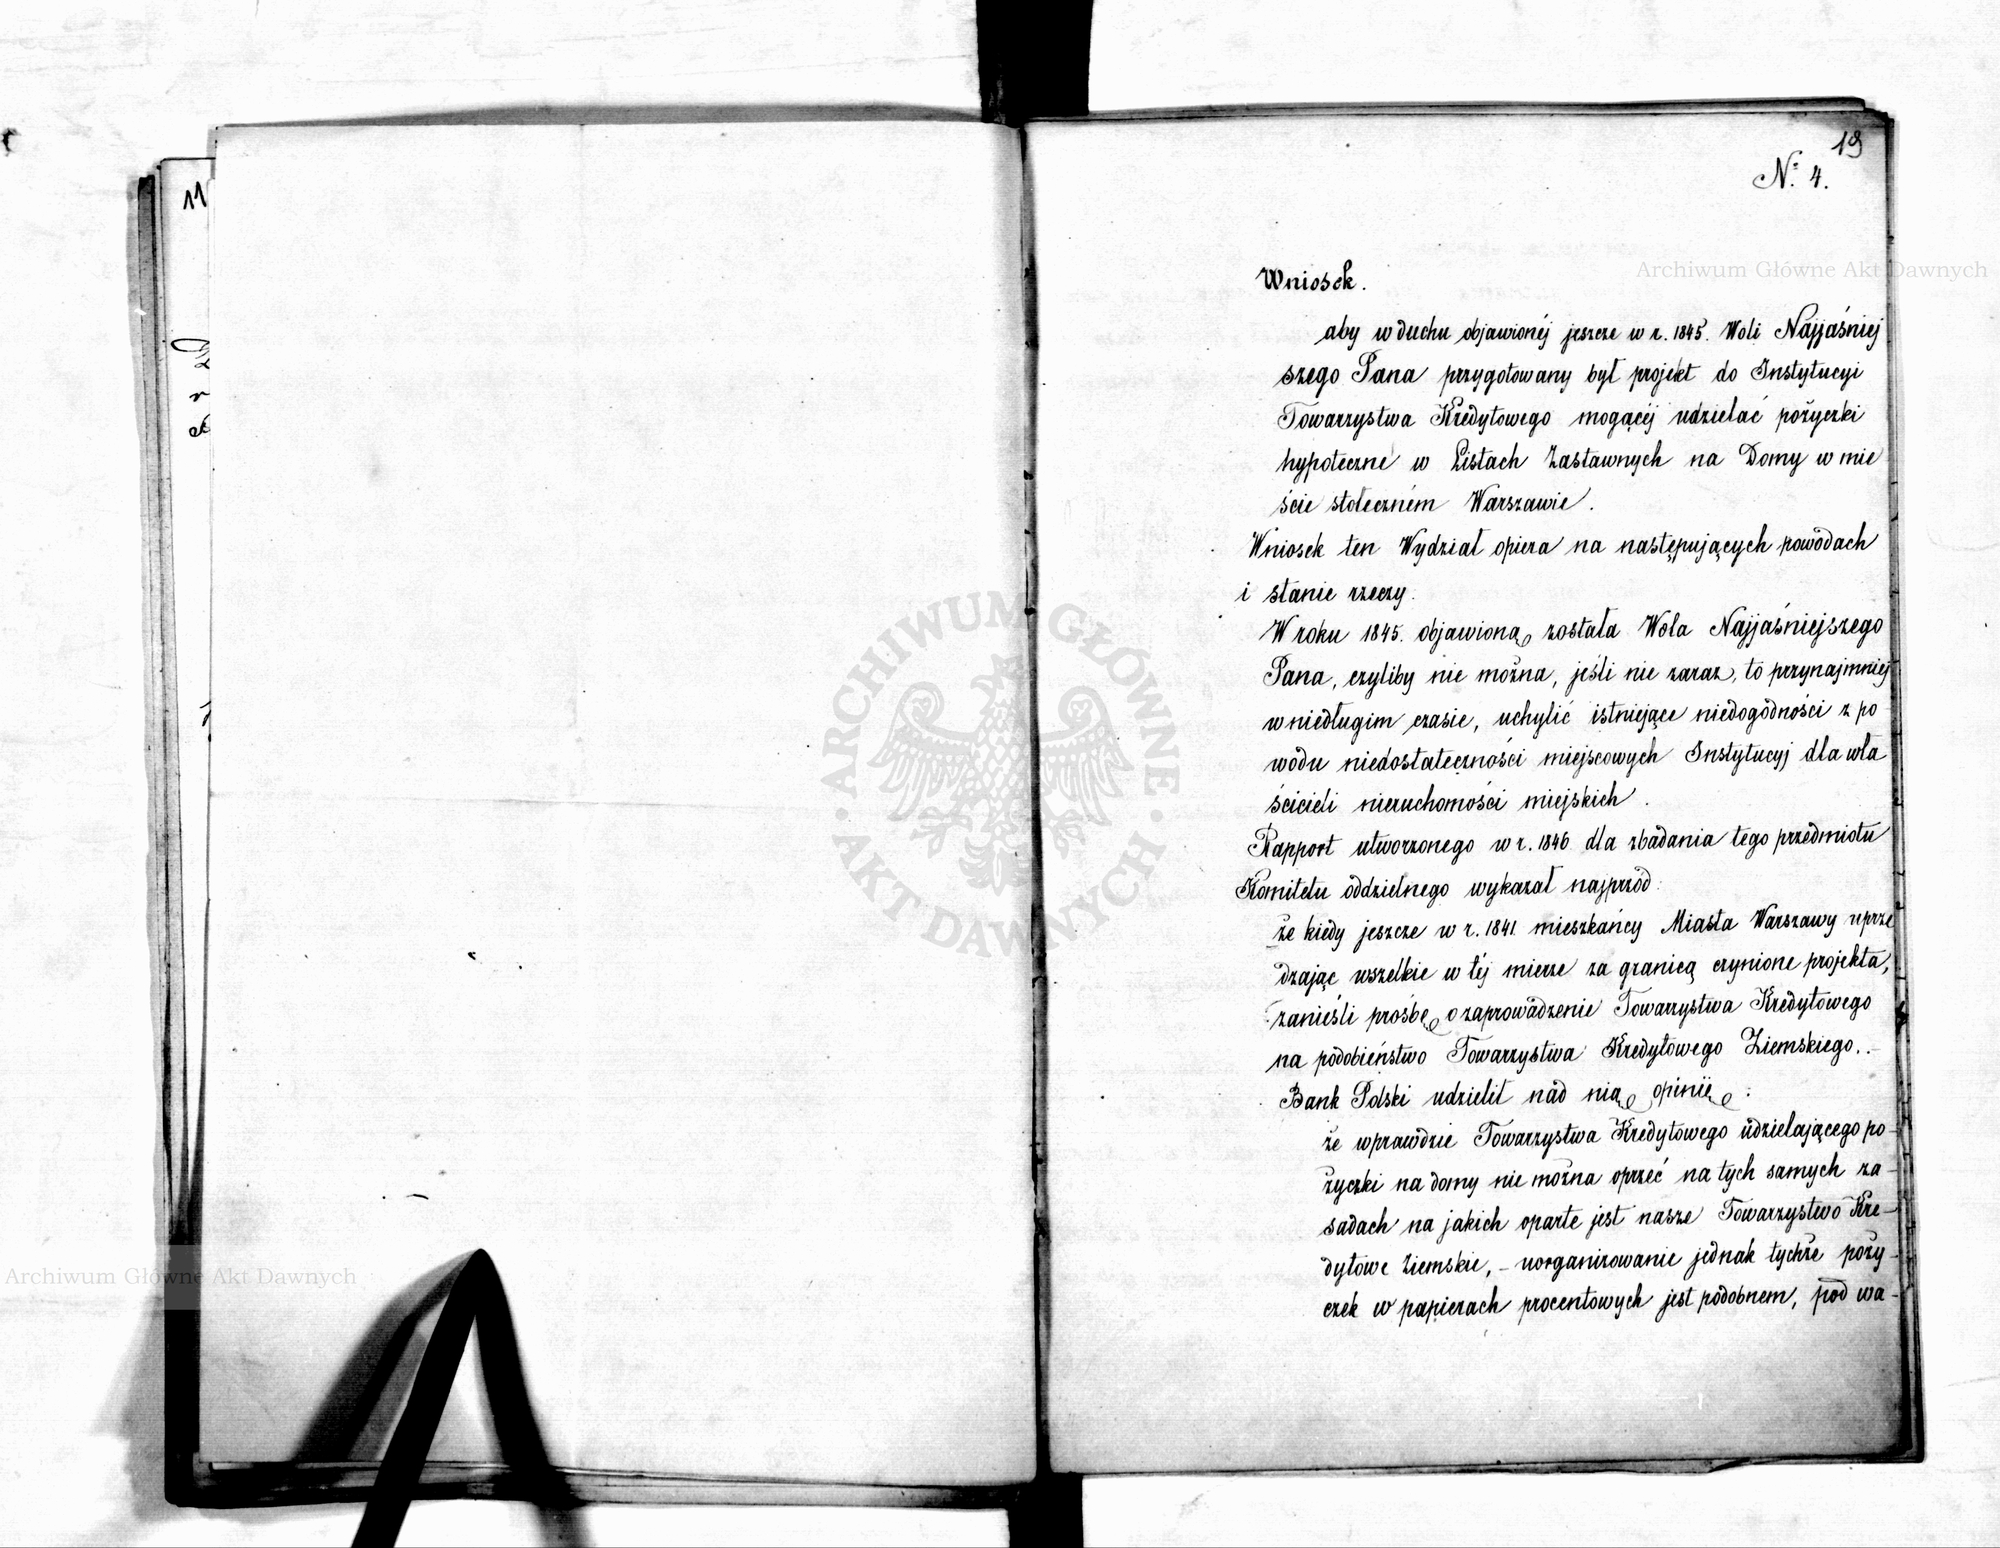 11
19
Nº 4.
Archiwum Główne Akt Dawnych
Wniosek.
aby w duchu objawionéj jeszcze w r. 1845. Woli Najjaśniej
szego Pana przygotowany był projekt do Instytucyi
Towarzystwa Kredytowego mogącéj udzielać pożyczki
hypoteczne w Listach Zastawnych na Domy w mie
ście stołeczném Warszawie.
Wniosek ten Wydział opiera na następujących powodach
i stanie rzeczy.
W roku 1845. objawioną została Wola Najjaśniejszego
Pana, czyliby nie można, jeśli nie zaraz, to przynajmniej
w niedługim czasie, uchylić istniejące niedogódności z po
wodu niedostateczności miejscowych Instytucyj dla wła
ścicieli nieruchomości miejskich.
Rapport utworzonego w r. 1846 dla zbadania tego przedmiotu
Komitetu oddzielnego wykazał najprzód:
że kiedy jeszcze w r. 1841. mieszkańcy Miasta Warszawy uprze
dzając wszelkie w téj mierze za granicą czynione projekta,
zanieśli prośbę o zaprowadzenie Towarzystwa Kredytowego
na podobieństwo Towarzystwa Kredytowego Ziemskiego.
Bank Polski udzielił nad nią opinię:
że wprawdzie Towarzystwa Kredytowego udzielającego po-
życzki na domy nie można oprzeć na tych samych za-
sadach na jakich oparte jest nasze Towarzystwo Kre-
dytowe Ziemskie, - uorganizowanie jednak tychże poży-
czek w papierach procentowych jest podobnem, pod wa-
ARCHIWUM GŁÓWNE
AKT DAWNYCH
Archiwum Główne Akt Dawnych